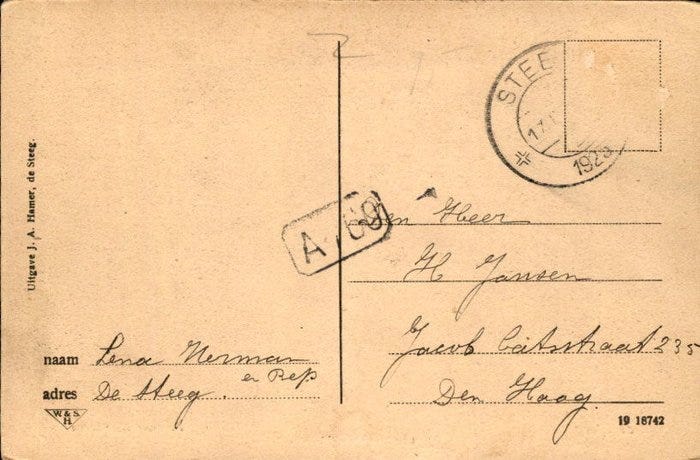 Uitgave J. A. Hamer, de Steeg.
naam Lena Herman
en Bep
adres De Steeg.
W & S
H
A 69
STEE
17
1923
Den Heer
H Jansen
Jacob Catsstraat 235
Den Haag.
19 18742